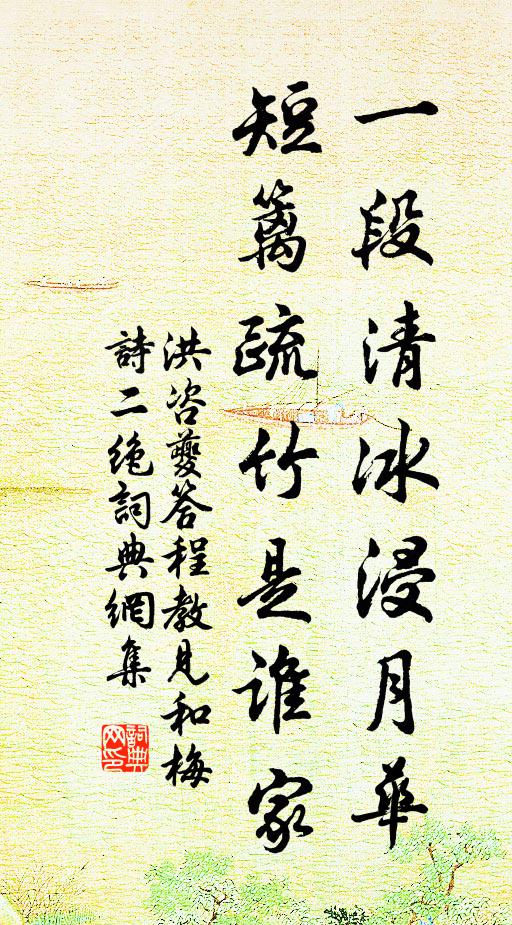 一段清冰浸月華
短籬疏竹是誰家
洪咨夔答程教見和梅
詩二絶詞典網集
詞典网印